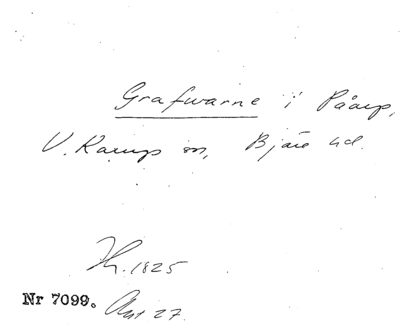 Grafwarne i Påarp,
V. Karup sn, Bjäre hd.
Hr. 1825
Nr 7099.